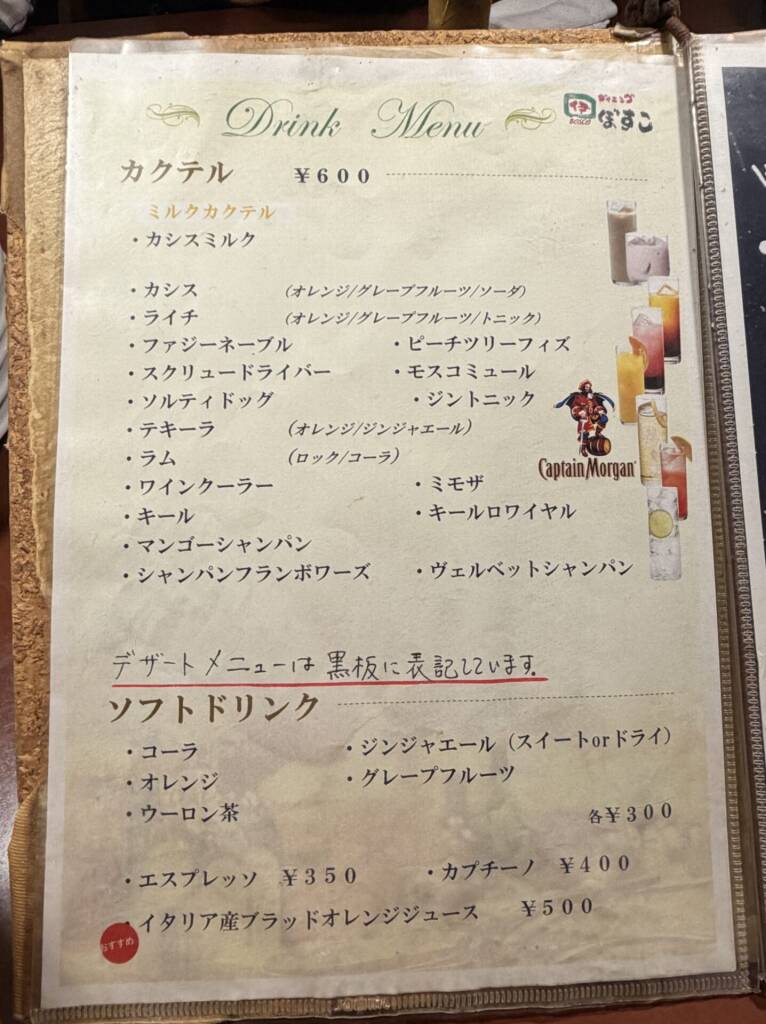 Drink Menu
伊
BOSCO
ダイニング
ぼすこ
カクテル ￥600
ミルクカクテル
・カシスミルク
・カシス (オレンジ/グレープフルーツ/ソーダ)
・ライチ (オレンジ/グレープフルーツ/トニック)
・ファジーネーブル ・ピーチツリーフィズ
・スクリュードライバー ・モスコミュール
・ソルティドッグ ・ジントニック
・テキーラ (オレンジ/ジンジャエール)
・ラム (ロック/コーラ)
Captain Morgan
・ワインクーラー ・ミモザ
・キール ・キールロワイヤル
・マンゴーシャンパン
・シャンパンフランボワーズ ・ヴェルベットシャンパン
デザートメニューは黒板に表記しています。
ソフトドリンク
・コーラ ・ジンジャエール（スイートorドライ）
・オレンジ ・グレープフルーツ
・ウーロン茶 各￥300
・エスプレッソ ￥350 ・カプチーノ ￥400
・イタリア産ブラッドオレンジジュース ￥500
おすすめ